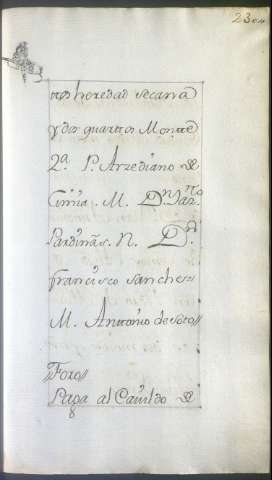 tros heredad Secana
y dos quartos Monte
2ª. P. Arzediano de
M. Dn.
Pardinãs. N. Dn.
francisco Sanches
M. Antonio de Soto//
//Foro//
Paga al Cavildo de
8